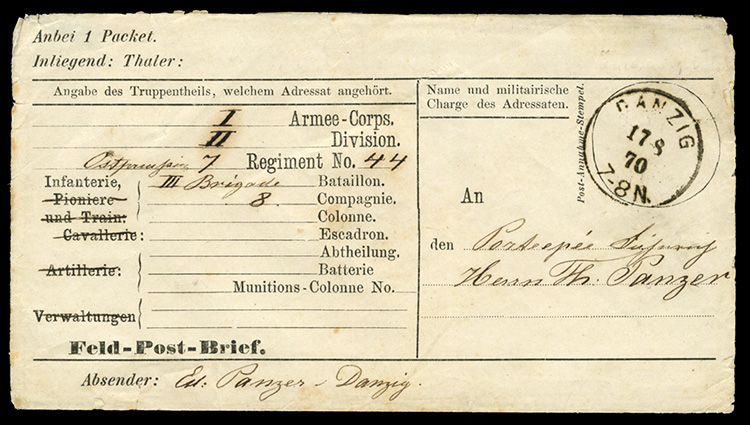 Anbei 1 Packet.
Inliegend: Thaler:
Angabe des Truppentheils, welchem Adressat angehört.
I Armee-Corps.
II Division.
7 Regiment No. 44
Infanterie, III Brigade Bataillon.
Pioniere 8. Compagnie.
und Train: Colonne.
Cavallerie: Escadron.
Abtheilung.
Artillerie: Batterie
Munitions-Colonne No.
Verwaltungen
Feld-Post-Brief.
Name und militairische
Charge des Adressaten.
Post-Annahme-Stempel.
DANZIG
17 8
70
7-8N.
An
den Porteepée
Herrn Th. Panzer
Absender: Ed: Panzer - Danzig.